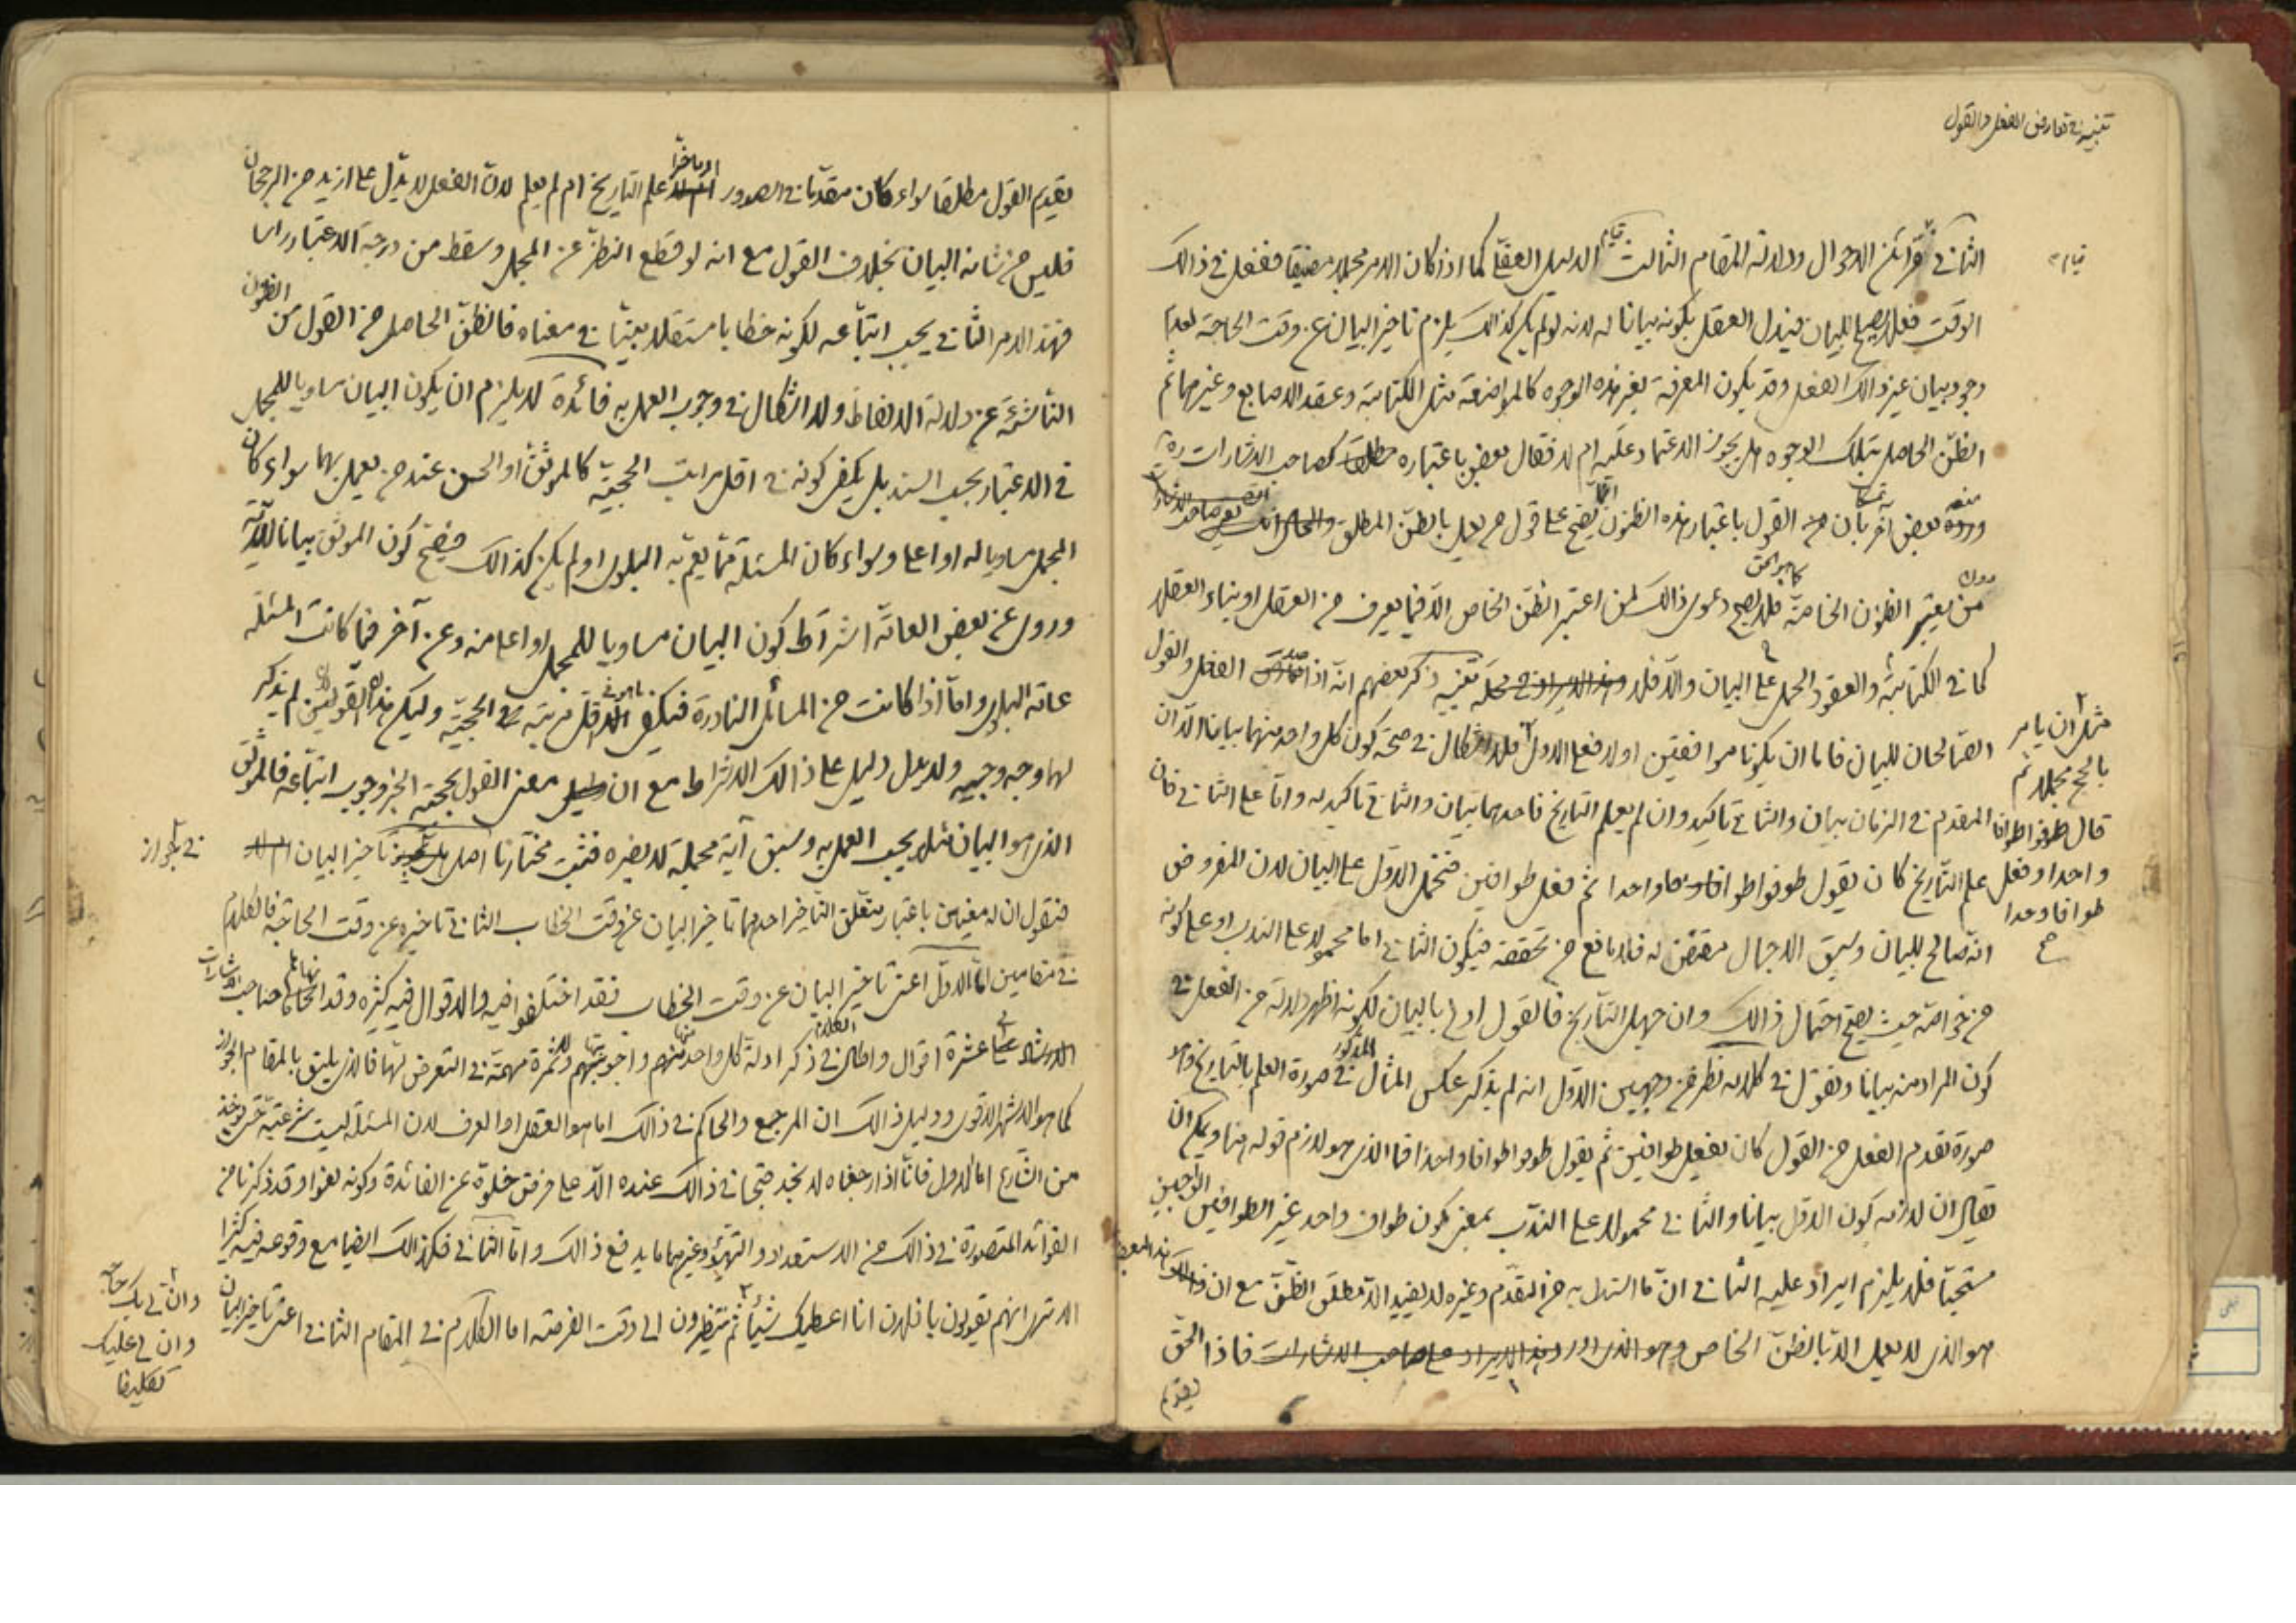 تنبيه في تعارض الفعل والقول
الثاني قرائن الاحوال ودلالة المقام الثالث قيام الدليل العقلي كما اذا كان الامر مجملا مضيقا ففعل في ذالك
الوقت فعلا يصلح للبيان فيدل العقل بكونه بيانا له لانه لو لم يكن كذالك يلزم تاخير البيان عن وقت الحاجة لعدم
وجود بيان غير ذالك الفعل وقد يكون المعرفة بغير هذه الوجوه كالمواضعة مثل الكتابة وعقد الاصابع وغيرهما ثم
الظن الحاصل بتلك الوجوه هل يجوز الاعتماد عليه ام لا فقال بعض باعتباره كصاحب الاشارات ره
ورده بعض آخر بان القول باعتبار هذه الظنون انما يصح على قول من يعمل بالظن المطلق
من يعتبر الظنون الخاصة فلا يصح دعوى ذالك لمن اعتبر الظن الخاص الا فيما يعرف من العقل او بناء العقلاء
كما في الكتابة والعقود الحمل على البيان والا فلا تنبيه ذكر بعضهم انه اذا الفعل والقول
الصالحان للبيان فاما ان يكونا موافقين اولا فعلى الاول فلا اشكال في صحة كون كل واحد منهما بيانا الا ان
المقدم في الزمان بيان والثاني تاكيد وان لم يعلم التاريخ فاحدهما بيان والثاني تاكيد له واما على الثاني فان
علم التاريخ كان يقول طوفوا طوافا واحدا ثم فعل طوافين فتحمل الاول على البيان لان المفروض
انه صالح للبيان وسبق الاجمال مقتض له فلا مانع من تحققه فيكون الثاني اما محمولا على الندب او على كونه
من خواصه حيث يصح احتمال ذالك وان جهل التاريخ فالقول اولى بالبيان لكونه اظهر دلالة من الفعل في
كون المراد منه بيانا ونقول في كلامه نظر من وجهين الاول انه لم يذكر عكس المثال المذكور في صورة العلم بالتاريخ وهو
صورة تقدم الفعل من القول كان يفعل طوافين ثم يقول طوفوا طوافا واحدا فما الذي هو لازم قوله هنا ويمكن ان
يقال ان لازمه كون الاول بيانا والثاني محمولا على الندب بمعنى كون طواف واحد غير الطوافين الواجبين
مستحبا فلا يلزم ايراد عليه الثاني ان ما استدل به من التقدم وغيره لا يفيد الا مطلق الظن مع ان
هو الذي لا يعمل الا بالظن الخاص وهو الذي اورد هذا الايراد على صاحب الاشارات فاذا الحق
تقديم
مثل ان يامر
بالحج مجملا ثم
قال طوفوا طوافا
واحدا وفعل
طوافا واحدا
صح
تقديم القول مطلقا سواء كان مقدما في الصدور او ماخرا علم التاريخ ام لم يعلم لان الفعل لا يدل على ازيد من الرجحان
فليس من شانه البيان بخلاف القول مع انه لو قطع النظر عن المجمل وسقط من درجة الاعتبار راسا
فهذا الامر الثاني يجب اتباعه لكونه خطابا مستقلا بينا في معناه فالظن الحاصل من القول من الظنون
الناشئة عن دلالة الالفاظ ولا اشكال في وجوب العمل به فائدة لا يلزم ان يكون البيان مساويا للمجمل
في الاعتبار بحسب السند بل يكفي كونه في اقل مراتب الحجية كالموثق او الحسن عند من يعمل بهما سواء كان
المجمل مساويا له او اعلى وسواء كان المسئلة مما يعم به البلوى او لم يكن كذالك فيصح كون الموثق بيانا للآية
وروى عن بعض العامة اشتراط كون البيان مساويا للمجمل او اعلى منه وعن آخر فيما كانت المسئلة
عامة البلوى واما اذا كانت من المسائل النادرة فيكفي اقل مرتبة في الحجية وليكن هذه القولين لم يذكر
لهما وجه وجيه ولا يدل دليل على ذالك الاشتراط مع ان معنى القول بحجية الخبر وجوب اتباعه فالموثق
الذي هو البيان مثلا يجب العمل به وسبق آية مجملة لا يضره فثبت مختارنا اصل تاخير البيان
فنقول ان له معنيين باعتبار متعلق التاخير احدهما تاخير البيان عن وقت الخطاب الثاني تاخيره عن وقت الحاجة فالكلام
في مقامين اما الاول اعني تاخير البيان عن وقت الخطاب فقد اختلفوا فيه والاقوال فيه كثيرة وقد صاحب الاشارات
الى عشرة اقوال واطال الكلام في ذكر ادلة كل واحد منها واجوبتها ولا ثمرة مهمة في التعرض لها فالذي يليق بالمقام الجواز
كما هو الاشهر الاقوى ودليل ذالك ان المرجع والحاكم في ذالك اما هو العقل او العرف لان المسئلة ليست شرعية حتى يوخذ
من الشارع اما الاول فانا اذا راجعناه لا نجد قبحا في ذالك عنده الا على فرض خلوه عن الفائدة وكونه لغوا وقد ذكرنا من
الفوائد المتصورة في ذالك من الاستعداد والتهيؤ وغيرهما ما يدفع ذالك واما الثاني فكذالك ايضا مع وقوعه فيه كثيرا
الا ترى انهم يقولون يا فلان انا اعطيك شيئا ثم ينتظرون الى وقت الفرصة اما الكلام في المقام الثاني اعني تاخير البيان
في جواز
وان لي بك حاجة
وان لي عليك
تكليفا